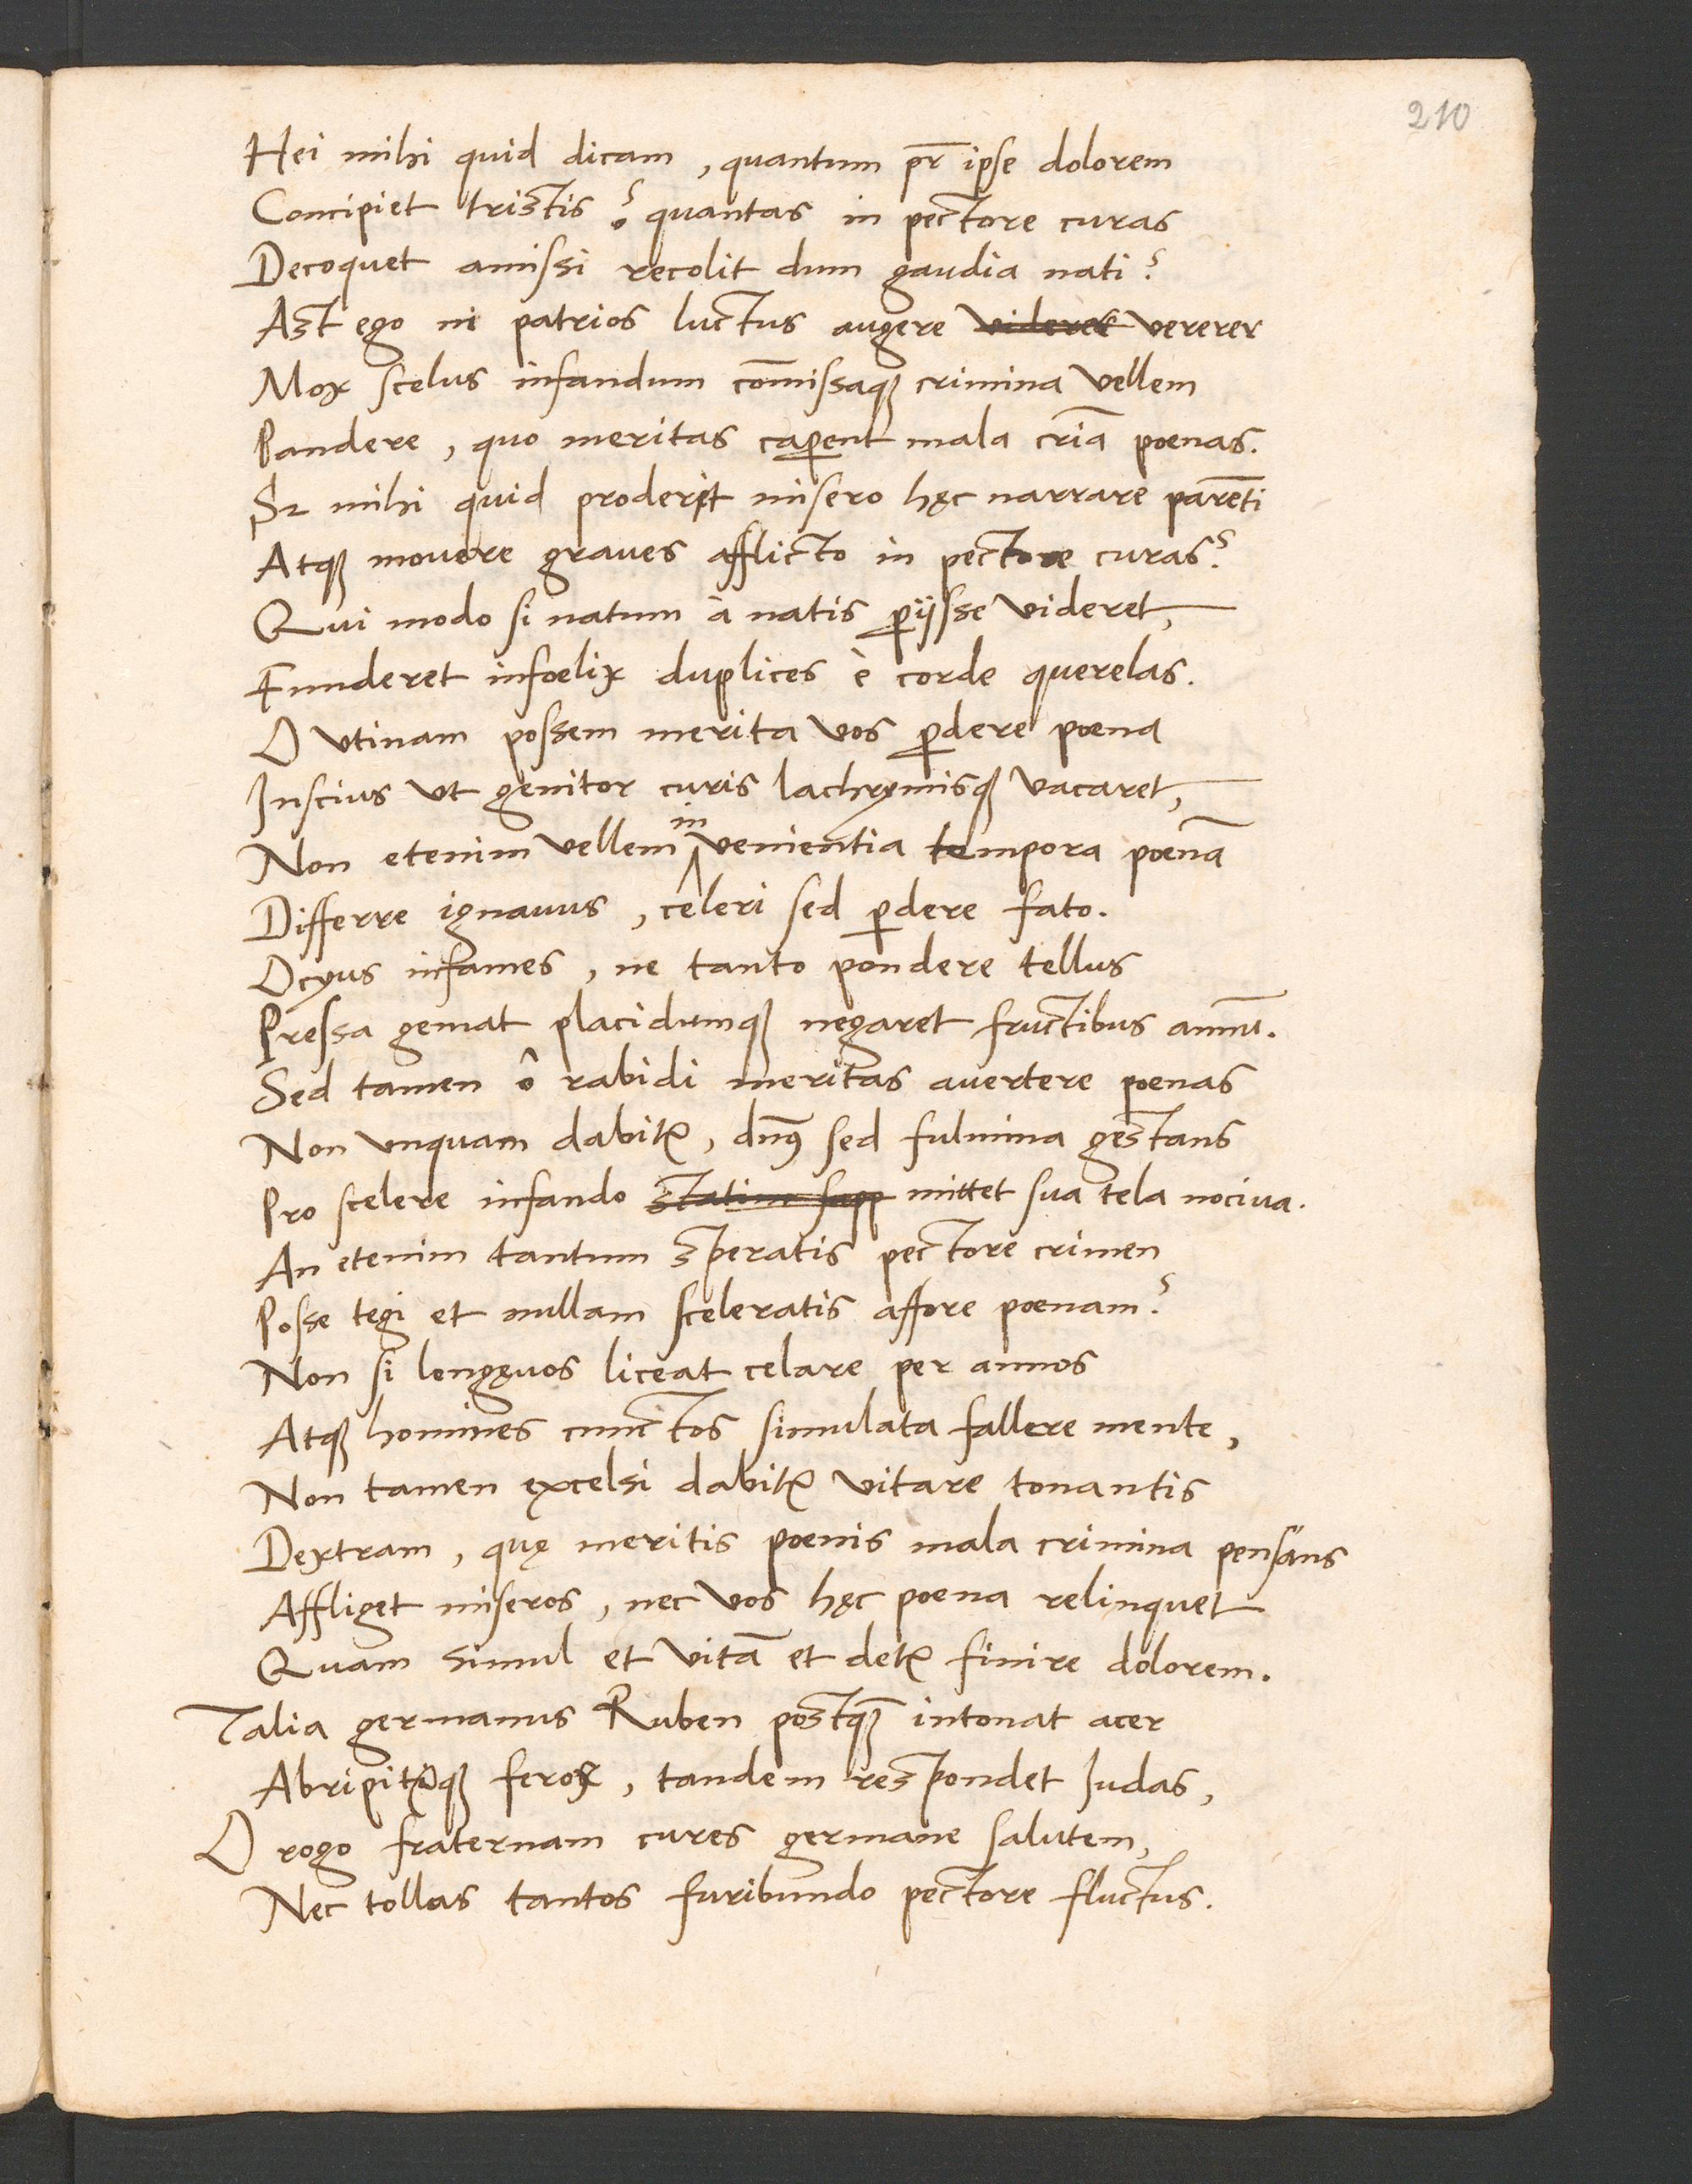 210
Hei mihi quid dicam, quantum pr̃ ipse dolorem
Concipiet tristis? quantas in pectore curas
Decoquet amissi recolit dum gaudia nati?
Ast ego ni patrios luctus augere videret vererer
Mox scelus infandum com̃issaqꝫ crimina vellem
Pandere, quo meritas caꝑent mala cria᷉ poenas.
Sꝫ mihi quid proderit misero hęc narrare parẽti
Atqꝫ mouere graues afflicto in pectore curas?
Qui modo si natum à natis ꝑijsse videret,
Funderet infoelix duplices è corde querelas.
O vtinam possem merita vos ꝑdere poena
Inscius vt genitor curis lachrymisqꝫ vacaret,
Non etenim vellem in venientia tempora poenã
Differre ignauus, celeri sed ꝑdere fato.
Ocyus infames, ne tanto pondere tellus
Pressa gemat placidumqꝫ negaret fructibus annũ.
Sed tamen ô rabidi meritas auertere poenas
Non vnquam dabitꝛ, dnꝰ sed fulmina gestans
Pro scelere infando statim supp mittet sua tela nociua.
An etenim tantum speratis pectore crimen
Posse tegi et nullam sceleratis affore poenam?
Non si longęuos liceat celare per annos
Atqꝫ homines cunctos simulata fallere mente,
Non tamen excelsi dabitꝛ vitare tonantis
Dextram, quę meritis poenis mala crimina pensans
Affliget miseros, nec vos hęc poena relinquet
Quam simul et vitã et detꝛ finire dolorem.
Talia germanus Ruben postqꝫ̃ intonat acer
Abripitꝛqꝫ ferox, tandem respondet Iudas,
O rogo fraternam cures germane salutem,
Nec tollas tantos furibundo pectore fluctus.